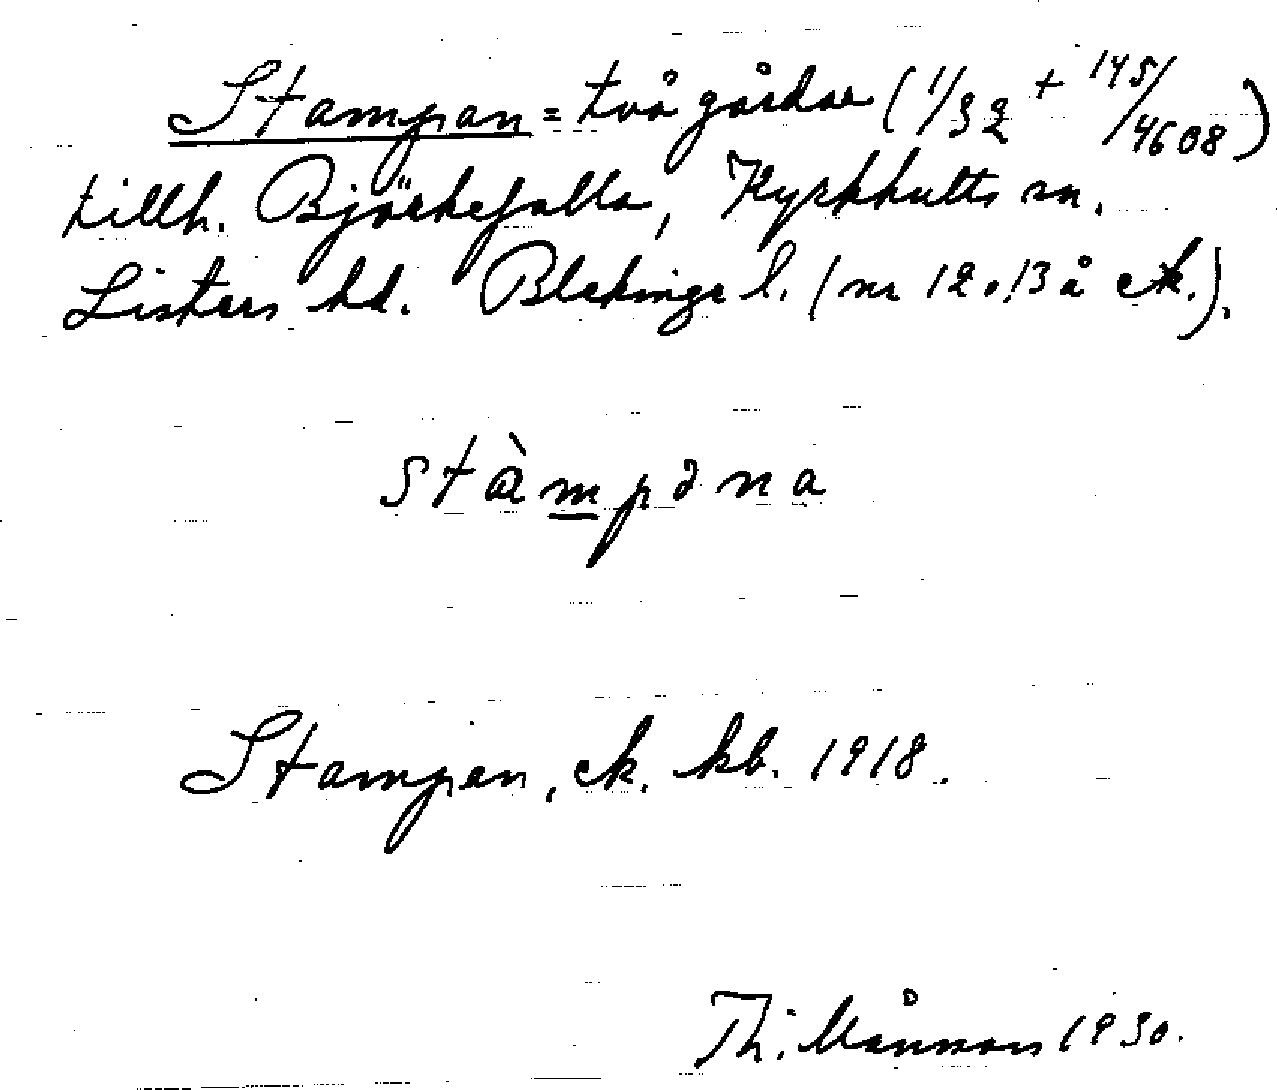 Stampan = två gårdar (1/32 + 145/4608)
tillh. Björkefalla, Kyrkhults sn.
Listers hd. Blekinge l. (nr 12 o. 13 å ek.).
stàmpəna
Stampen, ek. kb. 1918.
Th: Månsson 1930.